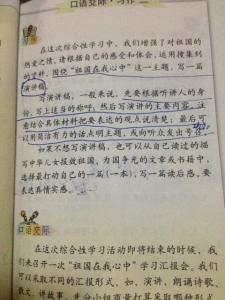 口语交际·习作二
在这次综合性学习中,我们增强了对祖国的
热爱之情。请根据自己的感受和体会,运用搜集到
的资料,围绕“祖国在我心中”这一主题,写一篇
演讲稿。
写演讲稿,一般来说,先要根据听讲人的身
份,写上适当的称呼,然后写演讲的主要内容。注
意结合具体材料把要表达的观点说清楚,最后可
以用简洁有力的话点明主题,或向听众发出号召。
如果不想写演讲稿,也可以从自己读过的描
写中华儿女报效祖国、为国争光的文章或书籍中,
选择最打动自己的一篇(一本),写一篇读后感,要
表达真情实感。
口语交际
在这次综合性学习活动即将结束的时候,我
们来召开一次“祖国在我心中”学习汇报会。我们
可以采取不同的汇报形式,如,演讲、朗诵诗歌、
散文,讲故事